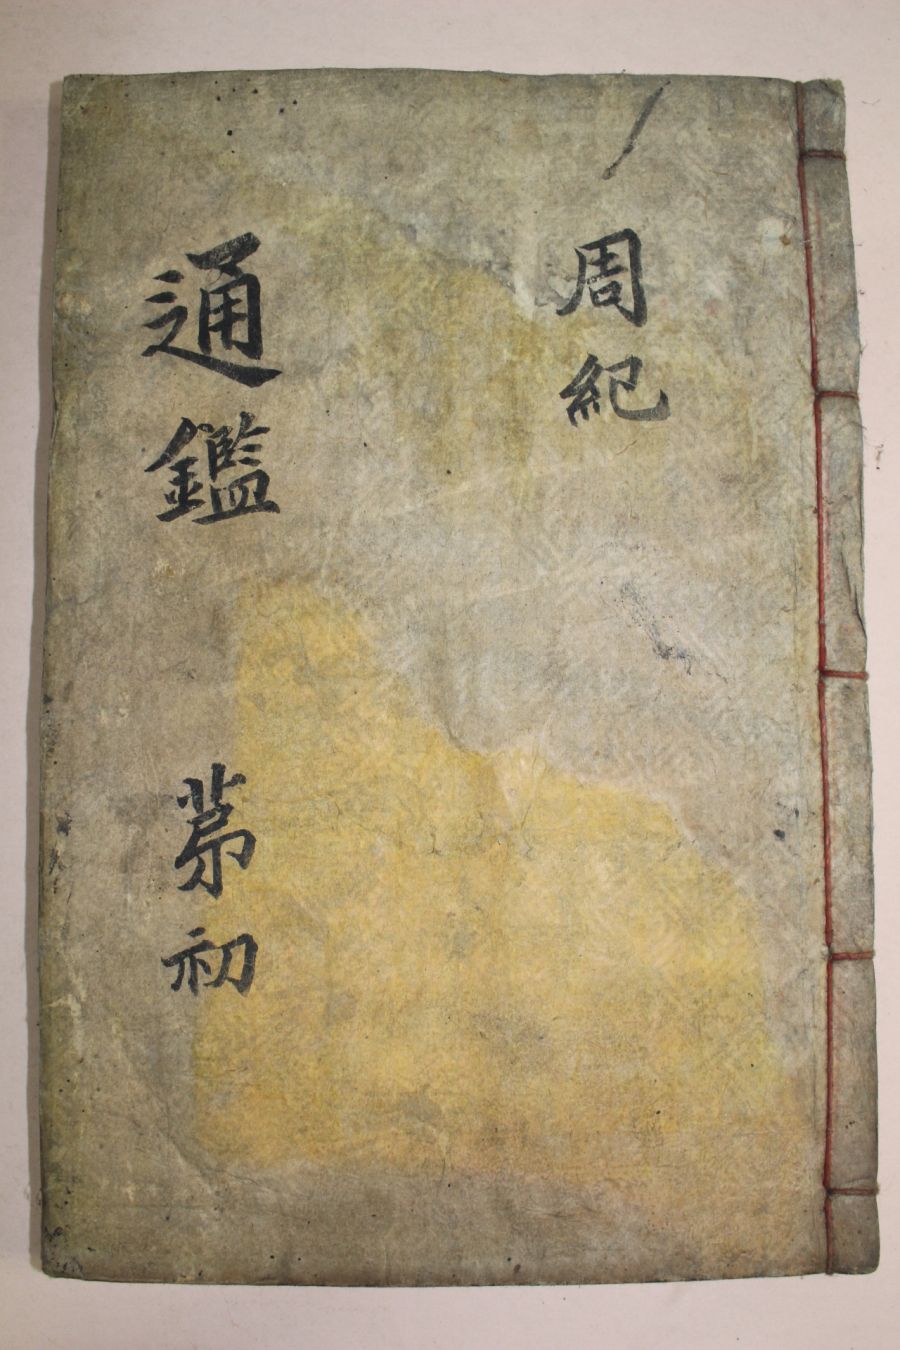 周紀
通鑑 苐初